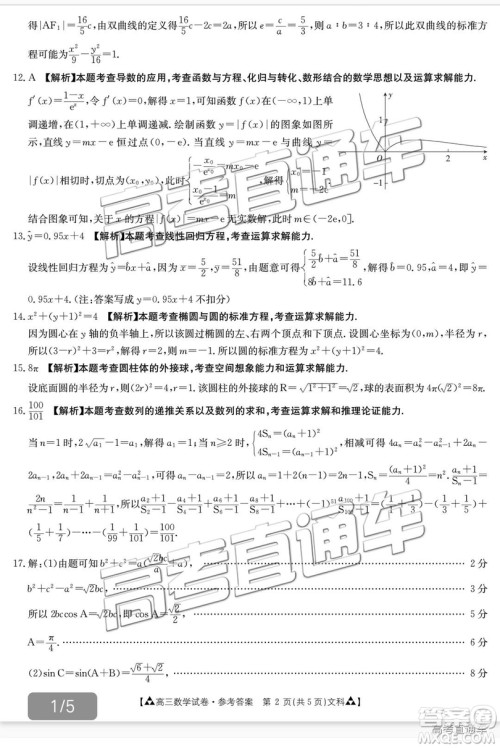 得|AF₁|=16/5c,由双曲线的定义得16/5c-2c=2a,所以e=c/a=5/3,则a:b=3:4,所以此双曲线的标准方
程可能为x²/9-y²/16=1.
12. A 【解析】本题考查导数的应用,考查函数与方程、化归与转化、数形结合的数学思想以及运算求解能力.
f′(x)=(1-x)/eˣ,令f′(x)=0,得x=1,可知函数f(x)在(-∞,1)上单
调递增,在(1,+∞)上单调递减.绘制函数y=|f(x)|的图象如图所
示,直线y=mx-e恒过点(0,-e),当直线y=mx-e与函数y=
|f(x)|相切时,切点为(x₀,y₀),此时
结合图象可知,关于x的方程|f(x)|=mx-e ∈(-2e,0].
13. ŷ=0.95x+4 【解析】本题考查线性回归方程,考查运算求解能力.
设线性回归方程为ŷ=b̂x+â,因为x̄=5/2,ȳ=51/8,由题意可得{5/2b̂+â=51/8, 8b̂+â=11.6,解得b̂=0.95,â=4,即ŷ=
0.95x+4.(注:答案写成y=0.95x+4不扣分)
14. x²+(y+1)²=4 【解析】本题考查椭圆与圆的标准方程,考查运算求解能力.
因为圆心在y轴的负半轴上,所以该圆过椭圆的左、右、上顶点.设圆心坐标为(0,m),半径为r,
所以(3-r)²+3=r²,解得r=2,所以m=-1,故该圆的标准方程为x²+(y+1)²=4.
15. 8π 【解析】本题考查圆柱体的外接球,考查空间想象能力和运算求解能力.
设底面圆的半径为r,则(2r)²=4,r=1.该圆的外接球的半径R=√(1²+1²)=√2,球的表面积为4π(√2)²=8π.
16. 100/101 【解析】本题考查数列的递推关系以及数列的求和,考查运算求解和推理论证能力.
当n=1时,2√a₁-1=a₁,解得a₁=1,当n≥2时,{4Sₙ=(aₙ+1)², 4Sₙ₋₁=(aₙ₋₁+1)² 可得4aₙ=aₙ²-aₙ₋₁²+2aₙ-
2aₙ₋₁,2aₙ+2aₙ₋₁=aₙ²-aₙ₋₁²,所以aₙ-aₙ₋₁=2,所以aₙ=1+2(n-1)=2n-1,Sₙ=(aₙ+1)²/4=n²,
17. 解:(1)由题意可知b²+c²=a(√2bc/a+a), 2分
b²+c²-a²=√2bc, 4分
所以2bccosA=√2bc,即cosA=√2/2, 5分
A=π/4. 6分
(2)sinC=sin(A+B)=(√6+√2)/4, 8分
高三数学试卷·参考答案 第2页(共5页)文科
1/5
高考直通车
高考直通车
高考直通车